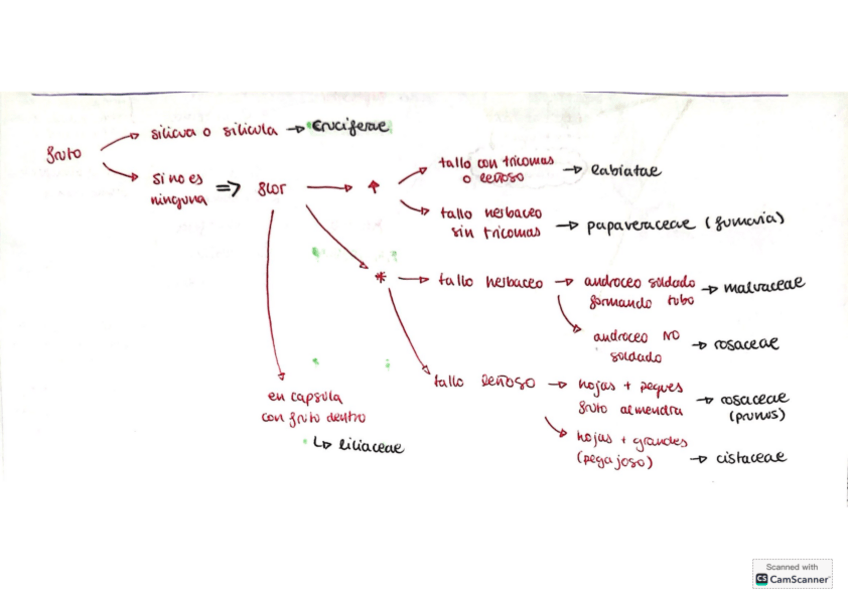 silicua o silicula → Cruciferae
fruto
si no es
ninguna ⇒ flor → ↑
tallo con tricomas
o leñoso → labiatae
tallo herbaceo
sin tricomas → papaveraceae (fumaria)
* → tallo herbaceo → androceo soldado
formando tubo → malvaceae
androceo NO
soldado → rosaceae
tallo leñoso → hojas + peques
fruto almendra → rosaceae
(prunus)
hojas + grandes
(pegajoso) → cistaceae
en capsula
con fruto dentro
↳ liliaceae
Scanned with
CS CamScanner